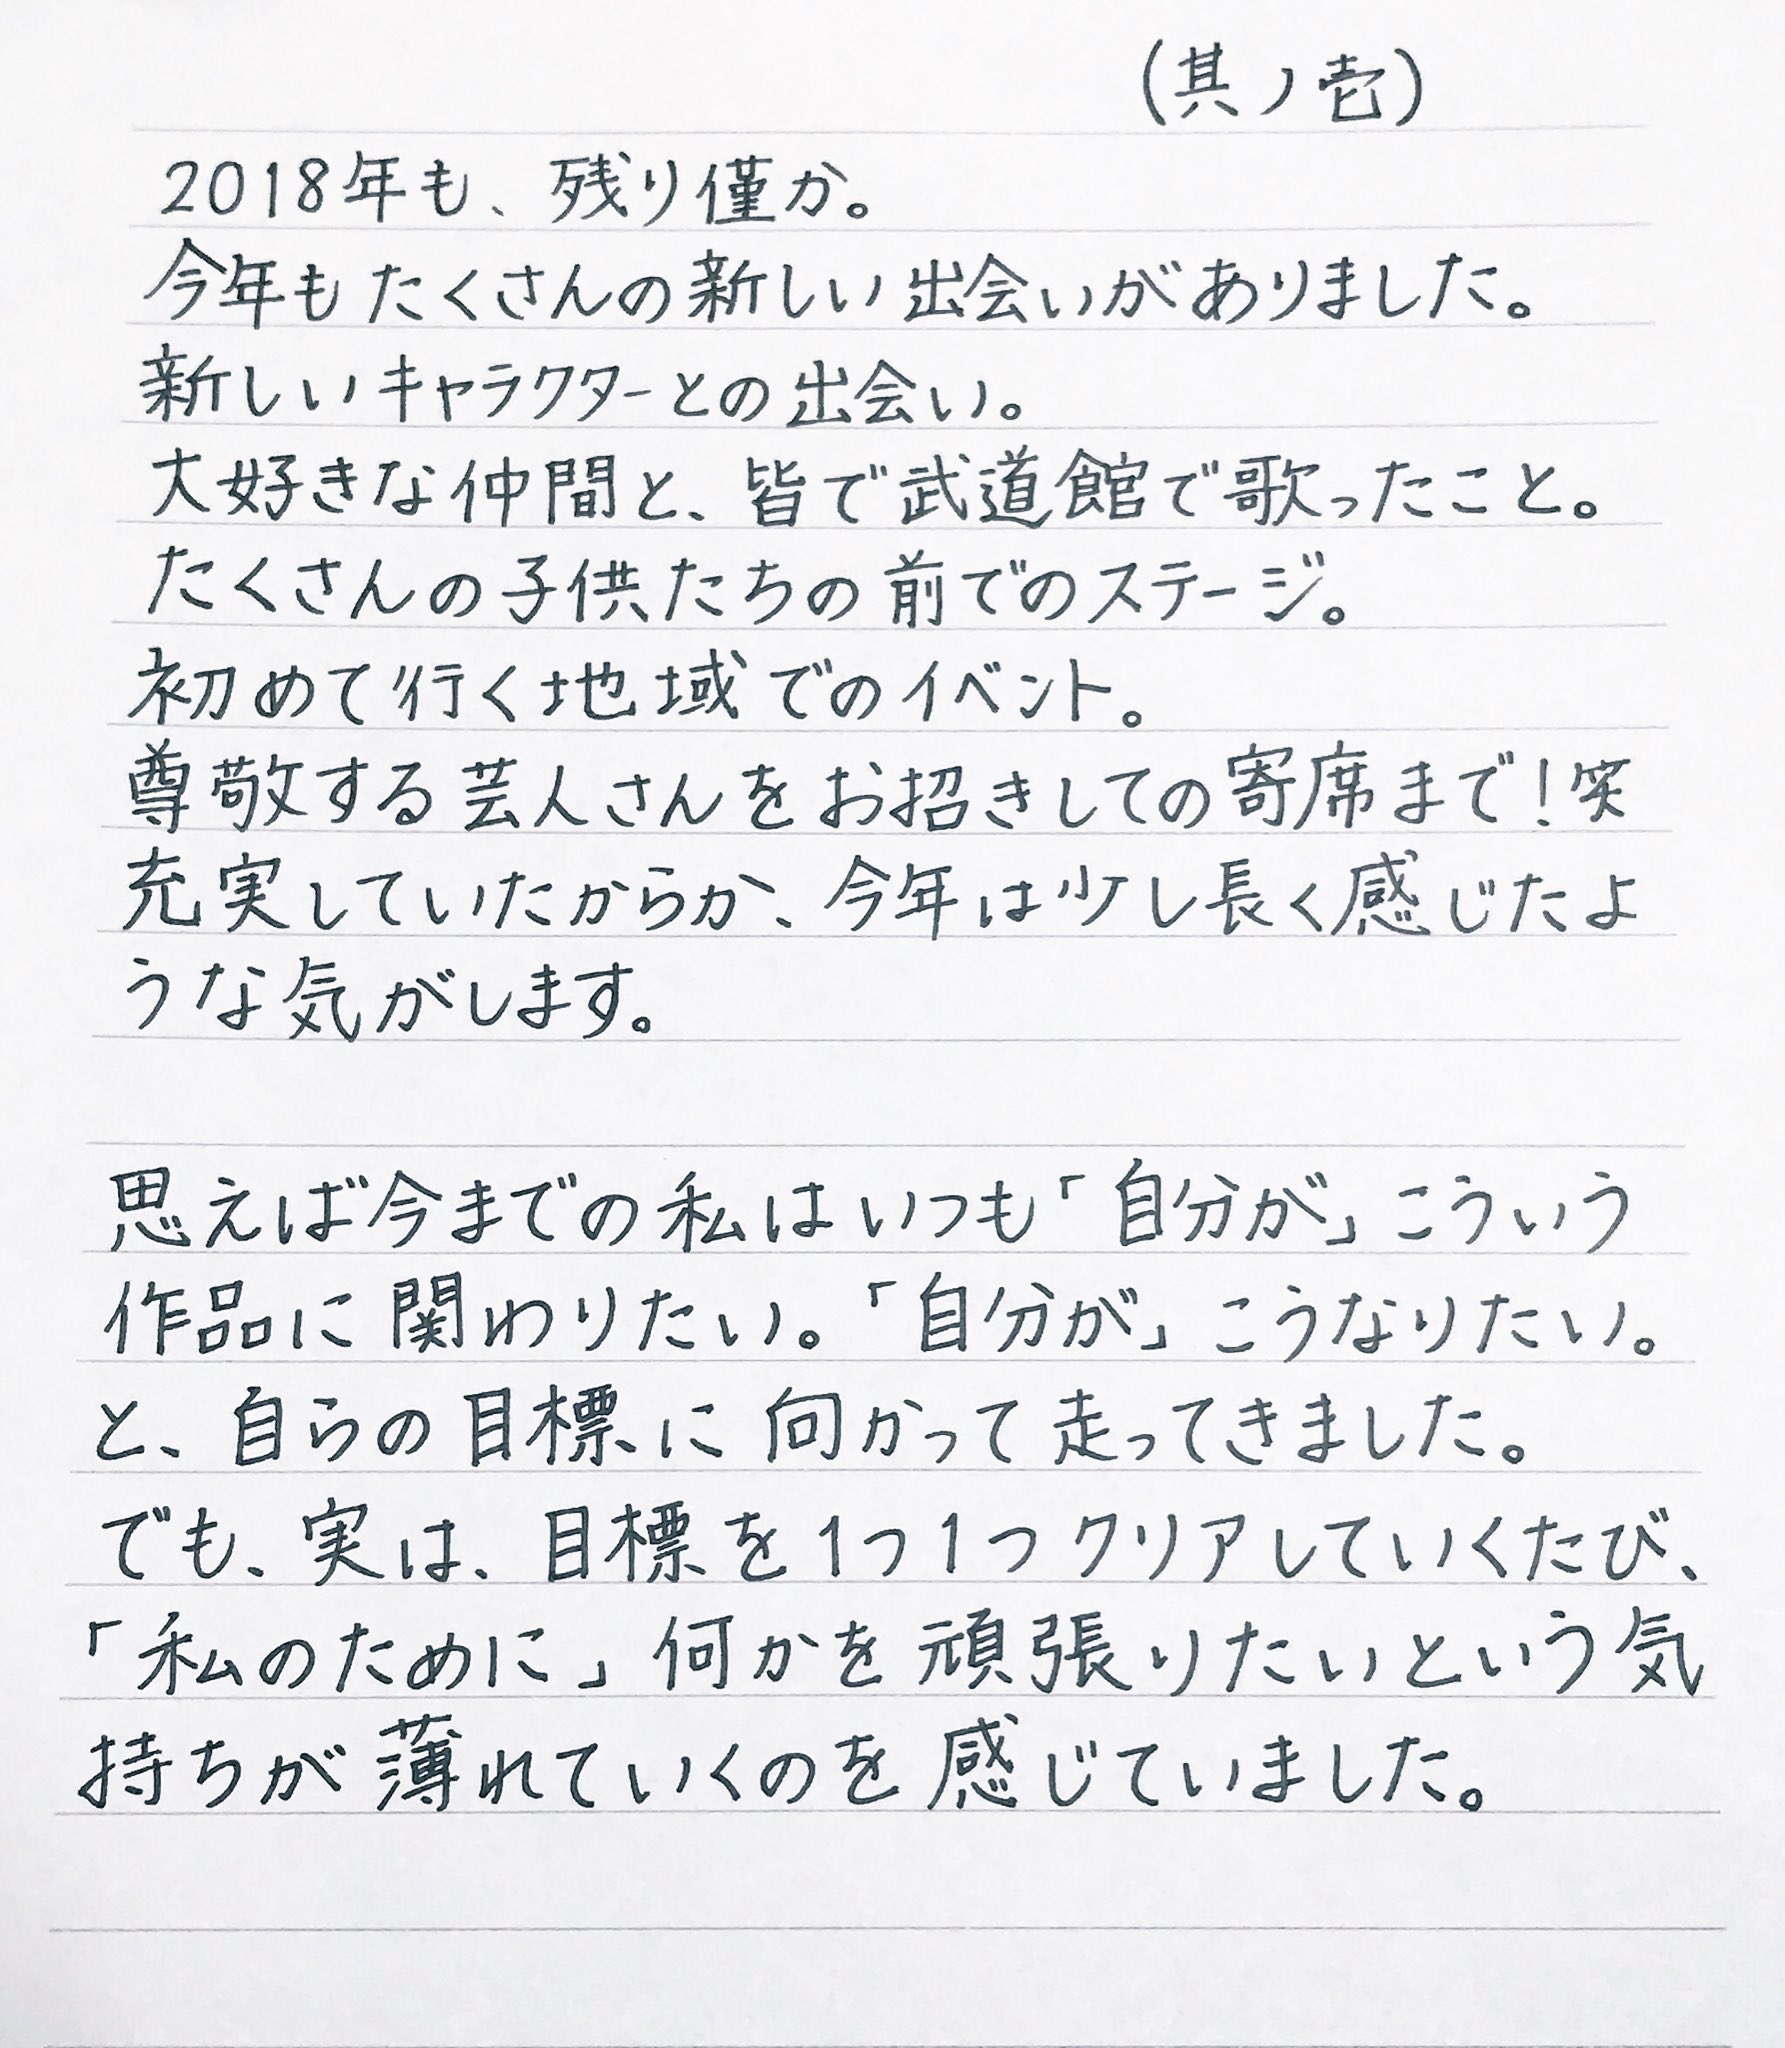 (其ノ壱)
2018年も、残り僅か。
今年もたくさんの新しい出会いがありました。
新しいキャラクターとの出会い。
大好きな仲間と、皆で武道館で歌ったこと。
たくさんの子供たちの前でのステージ。
初めて行く地域でのイベント。
尊敬する芸人さんをお招きしての寄席まで!笑
充実していたからか、今年は少し長く感じたよ
うな気がします。
思えば今までの私はいつも「自分が」こういう
作品に関わりたい。「自分が」こうなりたい。
と、自らの目標に向かって走ってきました。
でも、実は、目標を1つ1つクリアしていくたび、
「私のために」何かを頑張りたいという気
持ちが薄れていくのを感じていました。